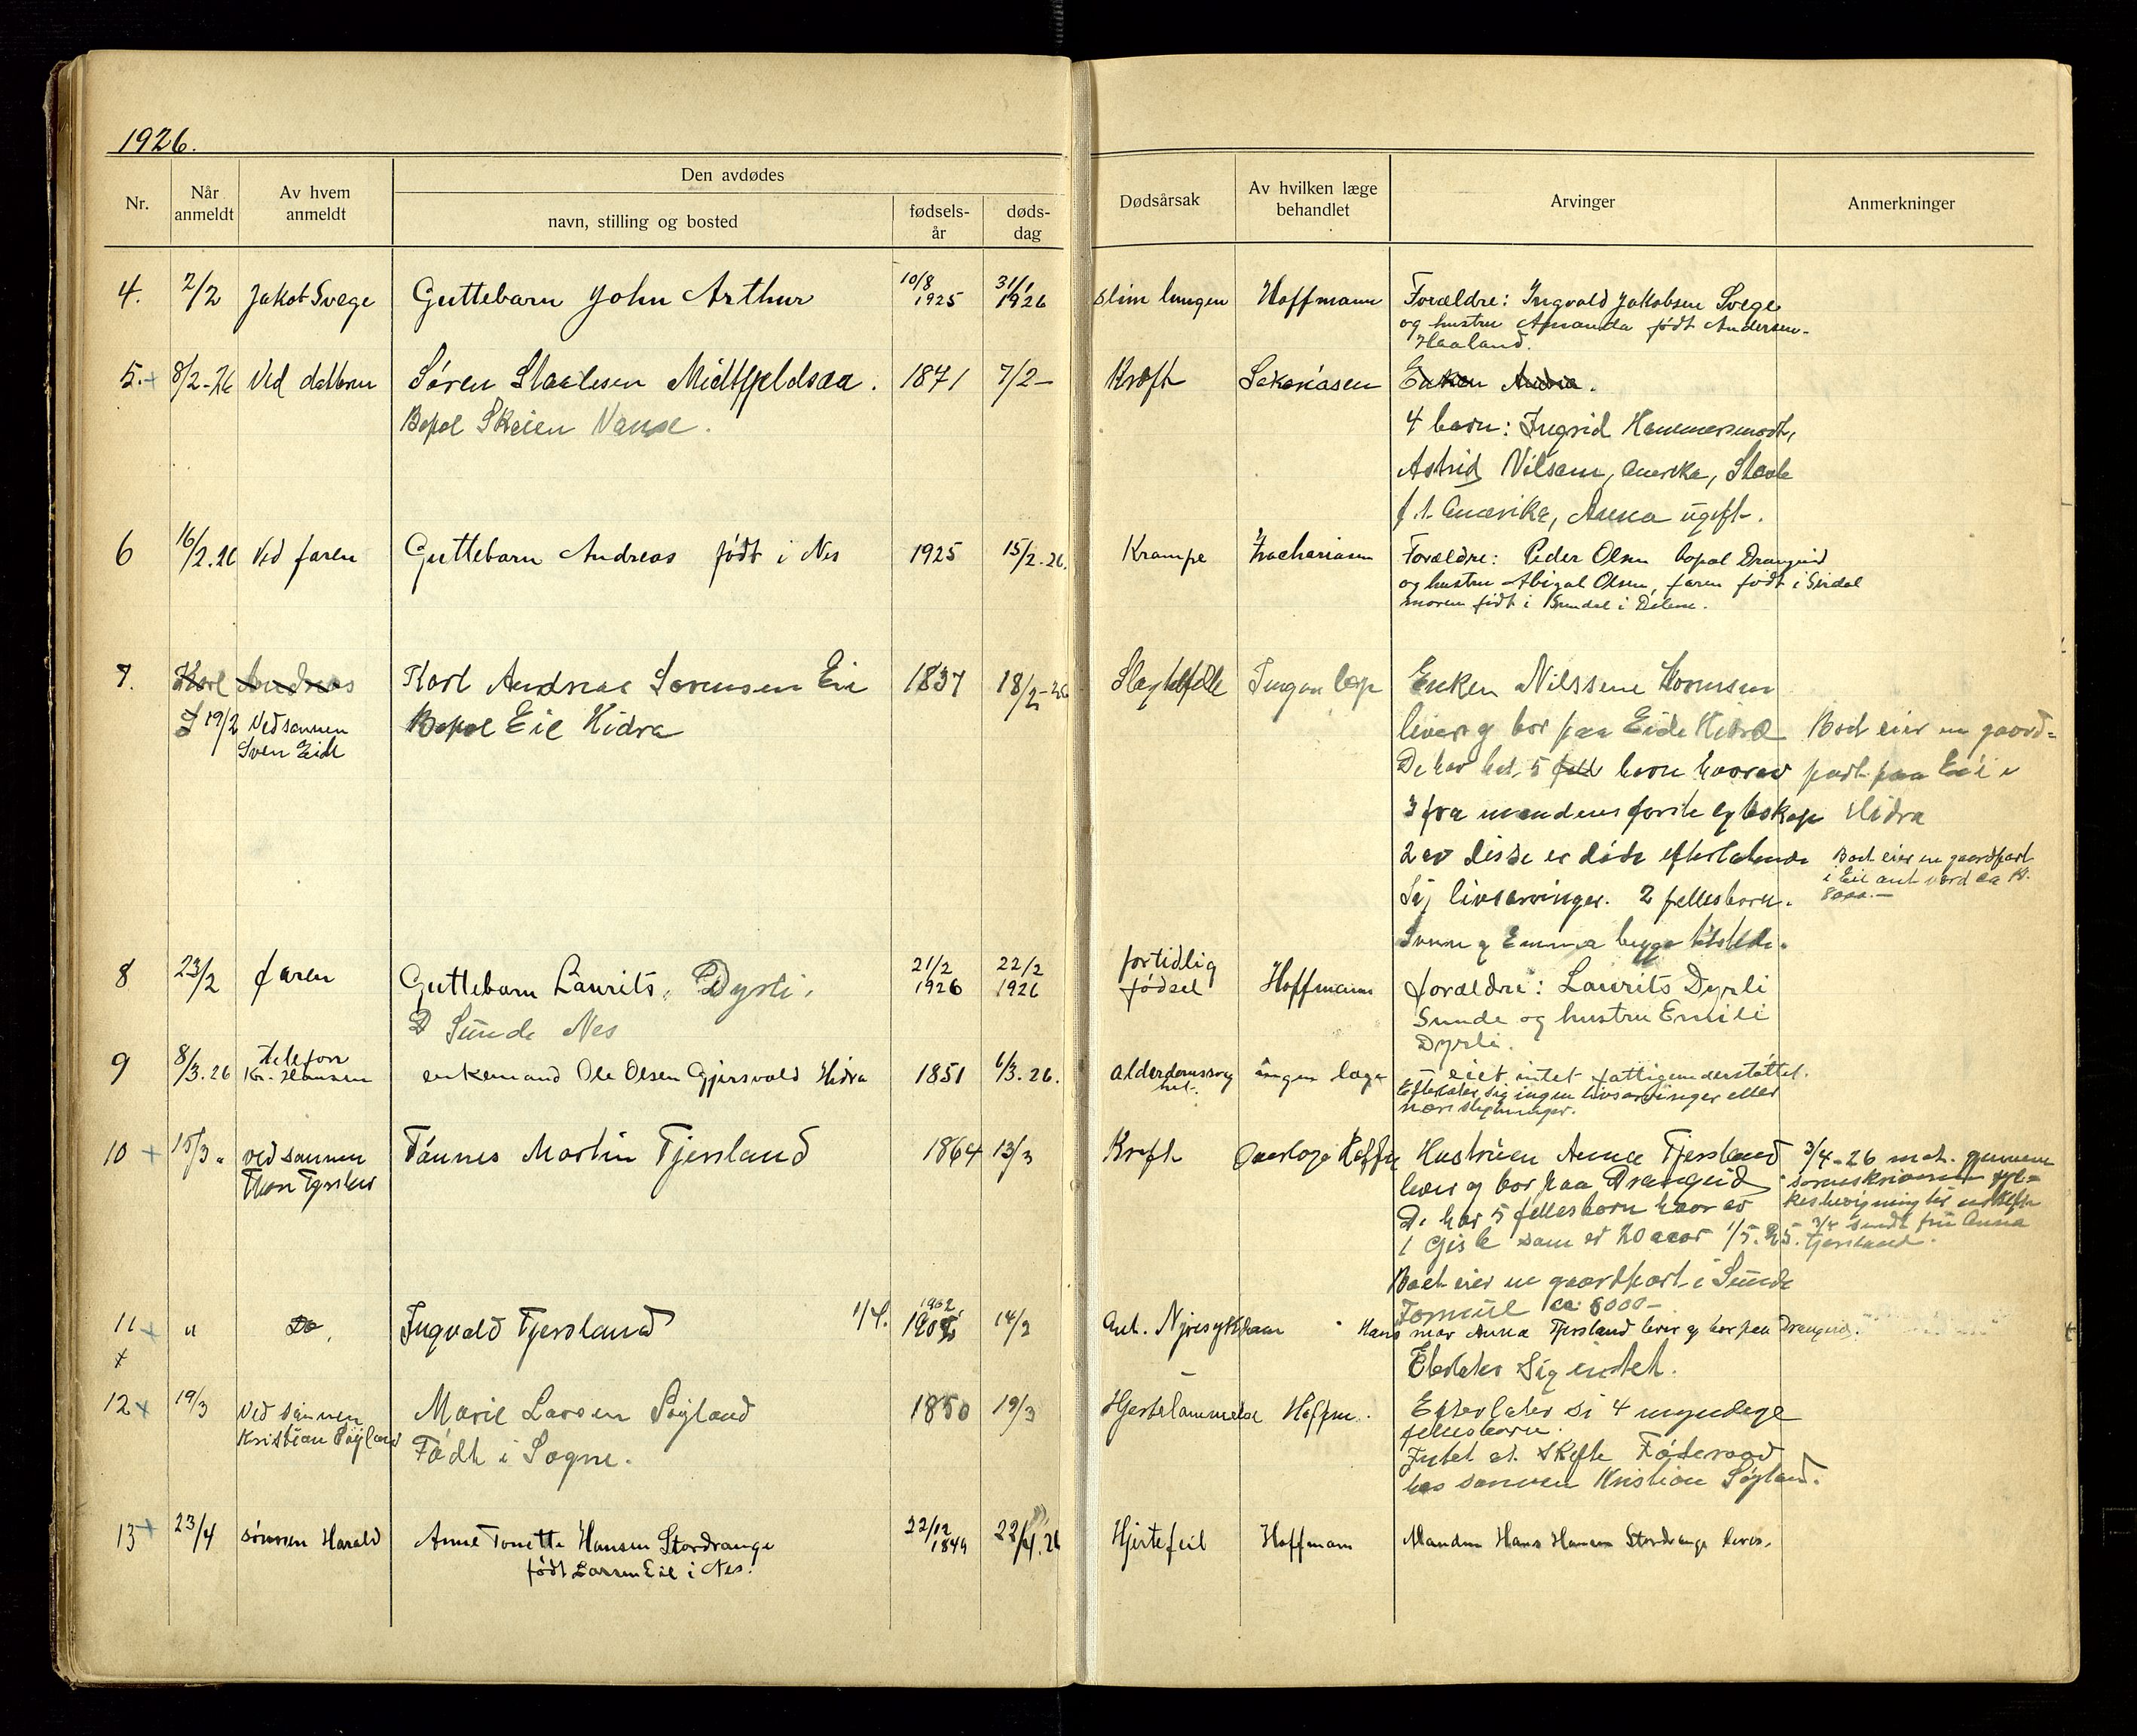 1926.
Nr.
Når anmeldt
Av hvem anmeldt
Den avdødes
navn, stilling og bosted
fødsels-år
døds-dag
Dødsårsak
Av hvilken læge behandlet
Arvinger
Anmerkninger
4. 2/2 Jakob Svege Guttebarn John Arthur 10/8 1925 31/1 1926 slim lungen Hoffmann Forældre: Ingvald Jakobsen Svege
og hustru Amanda født Andersen-
Haaland.
5. + 8/2-26 Ved datteren Søren Staalesen Midtfjeldsaa. 1871 7/2- Kræft Sakariasen Enken Andrea.
Bopel Skeien Vanse. 4 barn: Ingrid Hammersmodt,
Astrid Nilsen, Amerika, Staale
f.t. Amerika, Anna ugift.
6 16/2.26 Ved faren Guttebarn Andreas født i Nes 1925 15/2.26. Krampe Zachariasen Forældre: Peder Olsen bopel Drangeid
og hustru Abigal Olsen, faren født i Sirdal
moren født i
7. Karl Andreas Karl Andreas Sørensen Eie 1837 18/2-26 Slagtilfelle Ingen læge Enken Nilssene
19/2 Ved sønnen Bopel Eie Hidra lever og bor paa Eide Hidra Boet eier en gaard=
Sven Eide De har hat 5 barn hvorav part paa Eie i
3 fra mandens første egteskap Hidra
2 av disse er døde efterlatende Boet eier en gaardpart
i Eie ant værd ca kr.
Sig livsarvinger. 2 fellesbarn. 8000.-
Sven og Emma begge
8 23/2 faren Guttebarn Laurits, Dyrli, 21/2 1926 22/2 1926 fortidlig fødsel Hoffmann forældre: Laurits Dyrli
Sunde Nes Sunde og hustru Emili
Dyrli.
9 8/3.26 telefon Kr. Hansen enkemand Ole Olsen Gjersvold Hidra 1851 6/3.26. alderdomssvaghet. ingen læge - eiet intet fattigunderstøttet.
Efterlater sig ingen livsarvinger eller
nære slegtninger.
10 + 15/3 " ved sønnen Tønnes Martin Fjersland 1864 13/3 Kreft Hustruen Anna Fjersland 3/4-26 mot. gjennem
Thor Fjersland lever og bor paa Drangeid sorenskriveren
De har 5 fellesbarn hvor av
1 Gisle som er 20 aar 1/5.25. 3/4 sendt fru Anna Fjersland.
Boet eier en gaardpart i Sunde
Formue ca: 8000-
11 + + " Do, Ingvald Fjersland 1/4. 1902, 14/3 Ant. Nyresykdom " Hans mor Anna Fjersland lever og bor paa Drangeid.
Efterlater Sig intet.
12 + 19/3 Ved sønnen Marie Larsen Søyland 1850 19/3 Hjertelammelse Hoffm. Efterlater si 4 myndige
Kristian Søyland Født i Søgne. fellesbarn.
Intet at Skifte Føderaad
hos sønnen Kristian Søyland.
13 + 23/4 sønnen Harald Anne Tonette Hansen Stordrange 22/12 1849 22/4.26 Hjertefeil Hoffmann Manden Hans Hansen Stordrange lever.
født Larsen Eie i Nes.